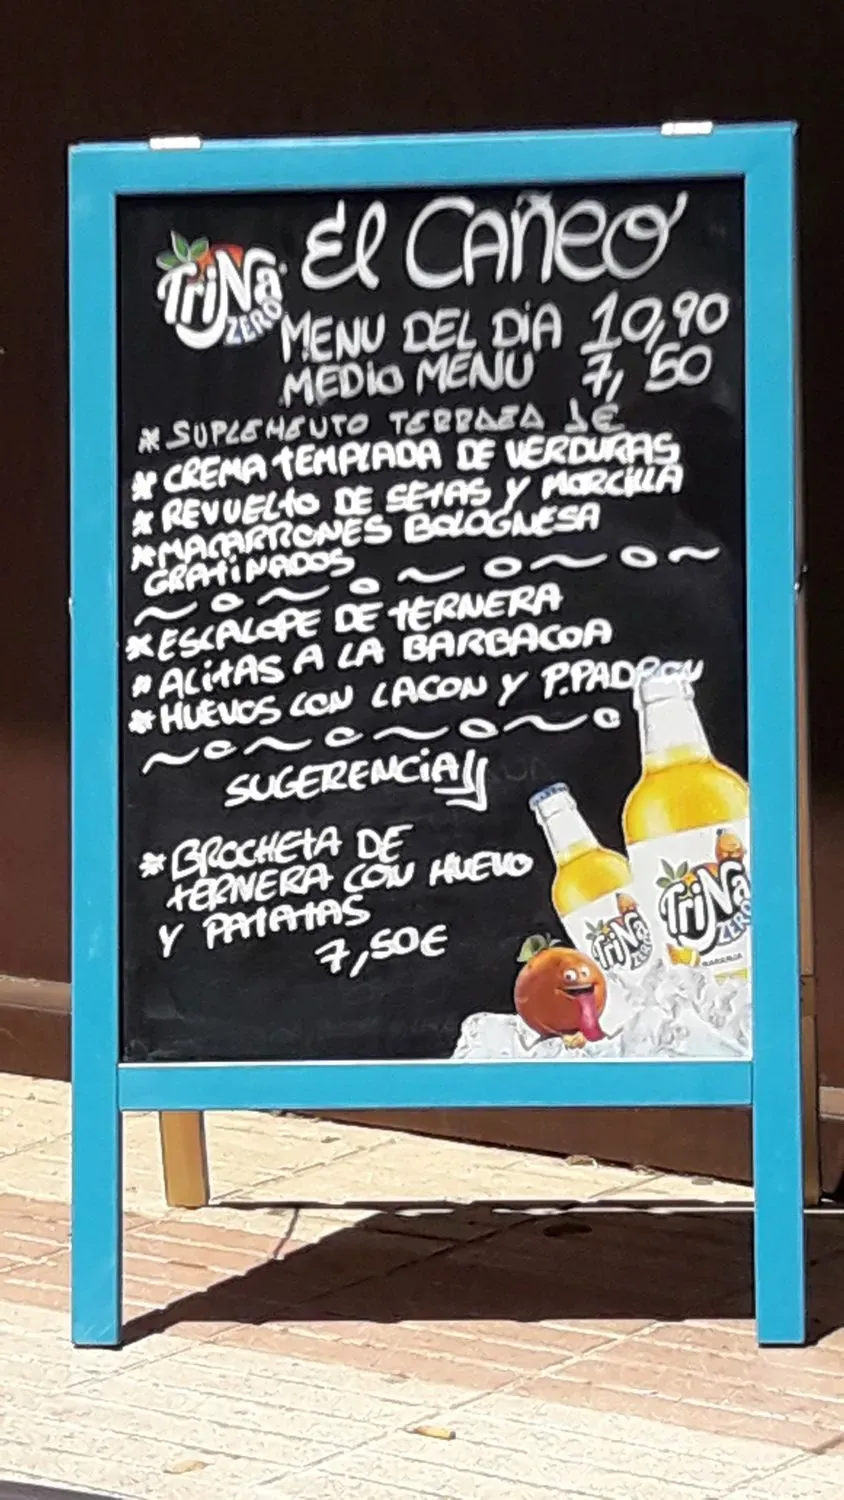 TriNa
ZERO
El CAÑEO
MENU DEL DIA 10,90
MEDIO MENU 7,50
* SUPLEMENTO TERRAZA 1€
* CREMA TEMPLADA DE VERDURAS
* REVUELTO DE SETAS Y MORCILLA
* MACARRONES BOLOGNESA
GRATINADOS
* ESCALOPE DE TERNERA
* ALITAS A LA BARBACOA
* HUEVOS CON LACON Y P.PADRON
SUGERENCIA
* BROCHETA DE
TERNERA CON HUEVO
Y PATATAS
7,50€
TriNa
ZERO
NARANJA
TriNa
ZERO